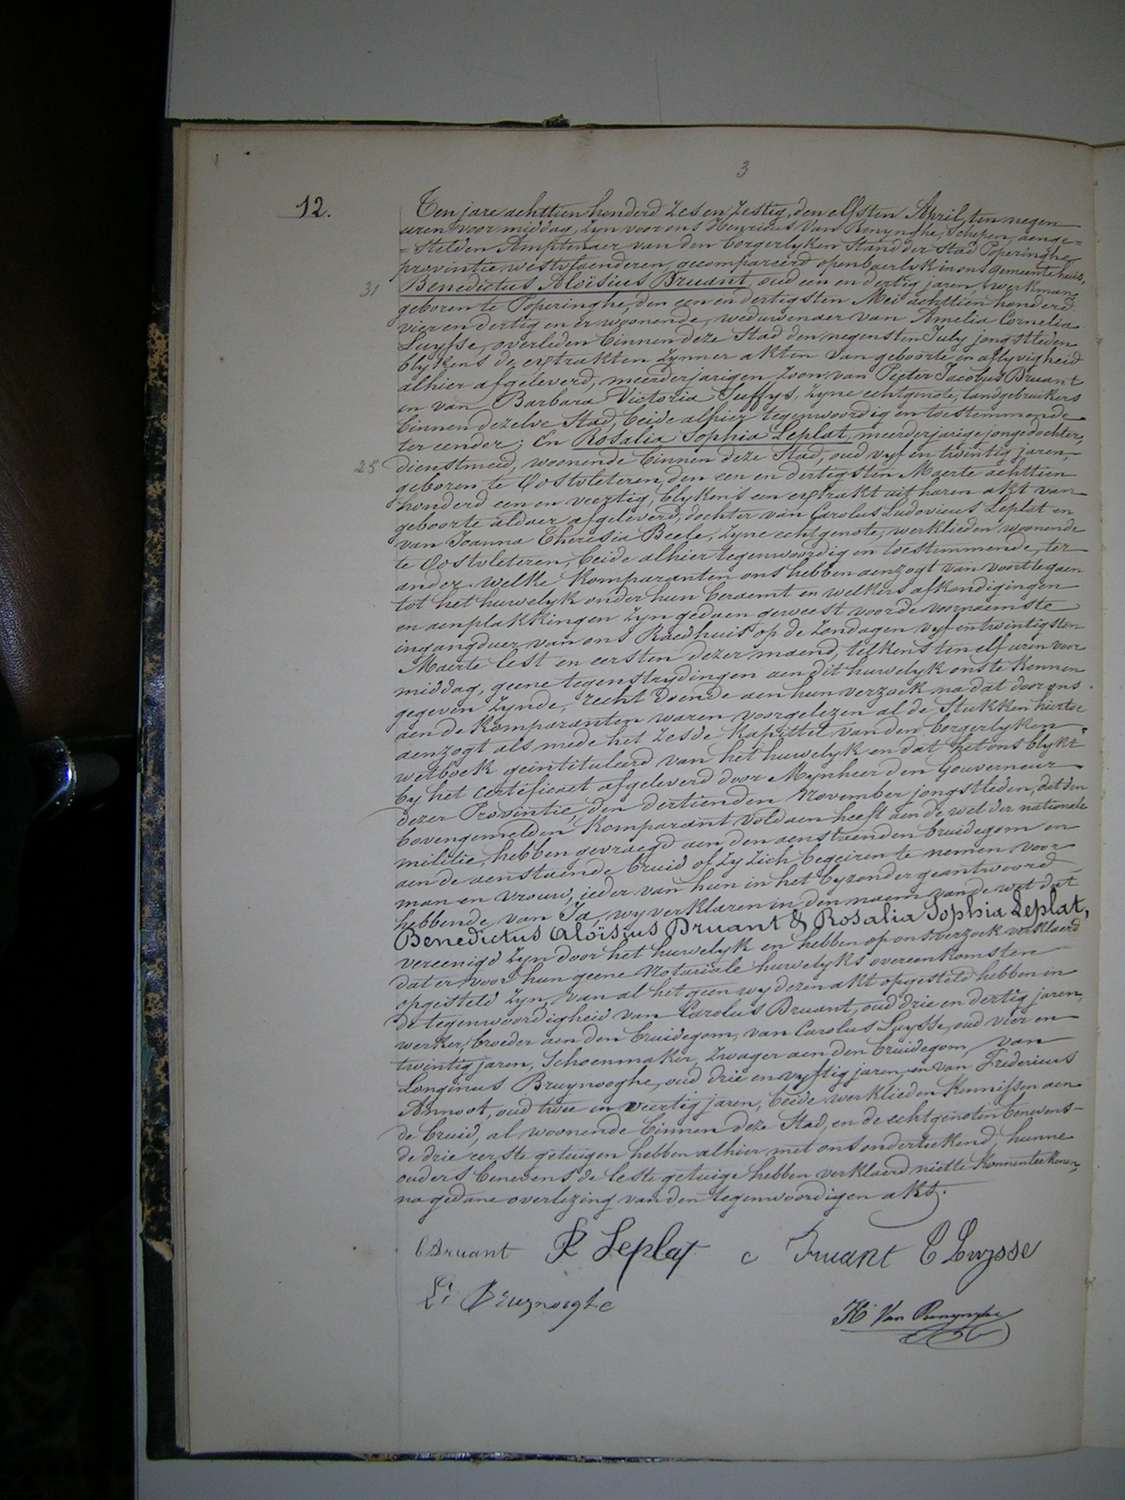 3
12.
Ten jare achttien honderd Zes en Zestig, den elfsten April, ten negen
uren voor middag, zyn voor ons Henricus Van Renynghe, Schepen, aenge=
=stelden Amptenaer van den borgerlyken Stand der Stad Poperinghe
provintie westvlaenderen, gecompareerd openbaerlyk in ons gemeentehuis,
31
Benedictus Aloïsius Bruant, oud een en dertig jaren, werkman,
geboren te Poperinghe, den een en dertigsten Mei achttien honderd
vier en dertig en er woonende, weduwenaer van Amelia Cornelia
Luysse, overleden binnen deze Stad den negensten July jongstleden
blykens de extrakten zynner akten van geboorte en aflyvigheid
alhier afgeleverd, meerderjarigen Zoon van Pieter Jacobus Bruant
en van Barbara Victoria Juffys, Zyne echtgenote, landgebruikers
binnen dezelve Stad, beide alhier tegenwoordig en toestemmende
ter eender; En Rosalia Sophia Leplat, meerderjarige jongedochter,
25
dienstmeid, woonende binnen deze Stad, oud vyf en twintig jaren,
geboren te Oostvleteren, den een en dertigsten Maerte achttien
honderd een en veertig, blykens een extrakt uit haren akt van
geboorte aldaer afgeleverd, dochter van Carolus Ludovicus Leplat en
van Joanna Theresia Beele, Zyne echtgenote, werklieden, woonende
te Oostvleteren, beide alhier tegenwoordig en toestemmende, ter
ander welke komparanten ons hebben aenzogt van voortegaen
tot het huwelyk onder hun beraemt en welkers afkondigingen
en aenplakkingen zyn gedaen geweest voor de voornaemste
ingangduer van ons Raedhuis op de Zondagen vyf en twintigsten
Maerte lest en eersten dezer maend, telkens ten elf uren voor
middag, geene tegenstrydingen aen dit huwelyk ons te kennen
gegeven zynde, recht doende aen hun verzoek na dat door ons
aen de komparanten waren voorgelezen al de Stukken hiertoe
aenzogt als mede het Zesde kapittel van den borgerlyken
wetboek geintituleerd van het huwelyk en dat het ons blykt
by het certificaet afgeleverd door Mynheer den Gouverneur
dezer Provintie, den dertienden November jongstleden, dat den
bovengemelden komparant voldaen heeft aen de wet der nationale
militie, hebben gevraegd aen den aenstaenden bruidegom en
aen de aenstaende bruid of zy zich begeiren te nemen voor
man en vrouw, ieder van hun in het byzonder geantwoord
hebbende van Ja, wy verklaren in den naem van de wet dat
Benedictus Aloïsius Bruant & Rosalia Sophia Leplat,
vereenigd zyn door het huwelyk en hebben op ons verzoek verklaerd
dat er voor hun geene Notariale huwelyks overeenkomsten
opgesteld zyn, van al het geen wy dezen akt opgesteld hebben in
de tegenwoordigheid van Carolus Bruant, oud drie en dertig jaren,
werker, broeder aen den bruidegom, van Carolus Luysse, oud vier en
twintig jaren, Schoenmaker, Zwager aen den bruidegom, van
Longinus Bruynooghe, oud drie en vyftig jaren, en van Fredericus
Annoot, oud twee en veertig jaren, beide werklieden kennissen aen
de bruid, al woonende binnen deze Stad, en de echtgenoten benevens
de drie eerste getuigen hebben alhier met ons onderteekend, hunne
ouders benevens de leste getuige hebben verklaerd niet te konnen teekenen,
na gedane overlezing van den tegenwoordigen akt.
B Bruant R Leplat c Bruant C Luysse
L. Bruynooghe
H. Van Renynghe